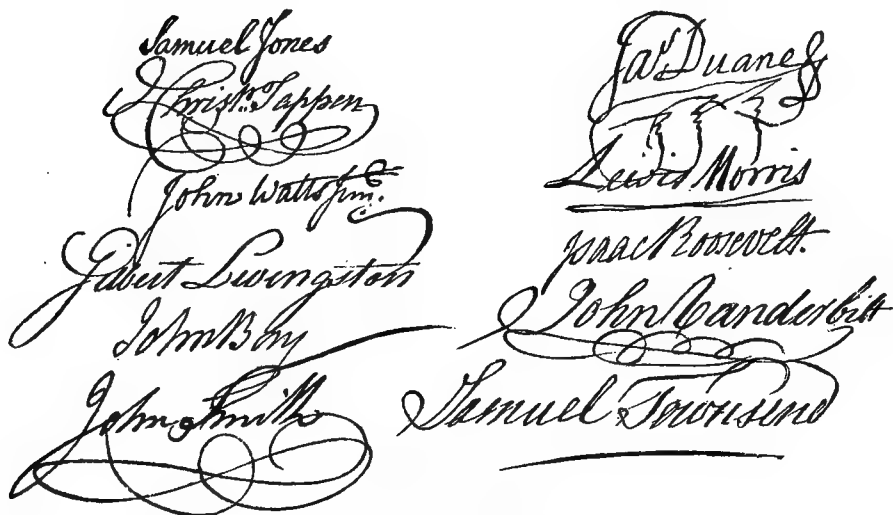 Samuel Jones
Christr. Tappen
John Watts Jun.
Gilbert Livingston
John Bay
John Smith
Jas. Duane
Lewis Morris
Isaac Roosevelt.
John Vanderbilt
Samuel Townsend